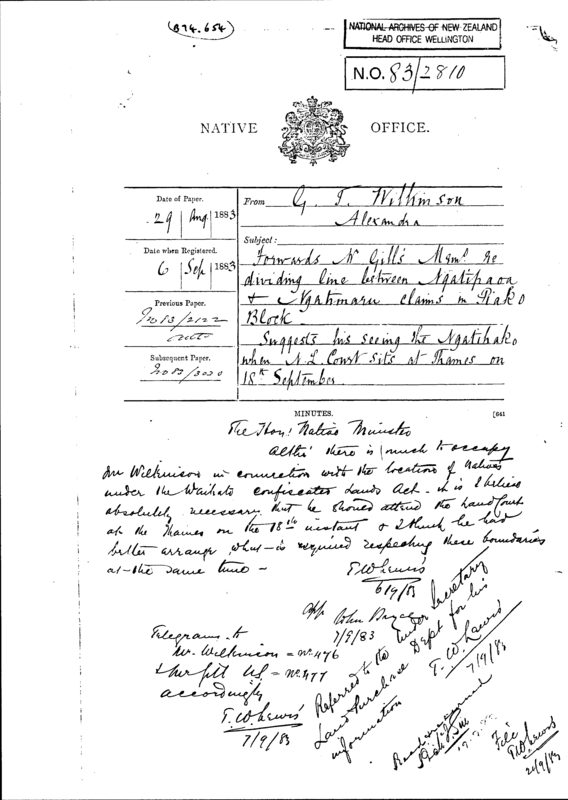 (B74.654)
NATIONAL ARCHIVES OF NEW ZEALAND
HEAD OFFICE WELLINGTON
N.O. 83/2810
NATIVE OFFICE.
Date of Paper.
29 Aug 1883
Date when Registered.
6 Sep 1883
Previous Paper.
No 83/2122
Subsequent Paper.
No 83/3020
From G. T. Wilkinson
Alexandra
Subject:
Forwards Mr Gill's Mgm. re
dividing line between Ngatipaoa
& Ngatimaru claims in Piako
Block
Suggests his seeing the Ngatihako
when N.L. Court sits at Thames on
18th September
MINUTES.
[641
The Hon. Native Minister
Altho' there is much to occupy
Mr Wilkinson in connection with the location of Natives
under the Waikato Confiscated Lands Act - it is I believe
absolutely necessary that he should attend the Land Court
at the Thames on the 18th instant & I think he had
better arrange what is required respecting these boundaries
at the same time -
T.W. Lewis
6/9/83
app
John Bryce
7/9/83
Telegrams to
Mr. Wilkinson = No. 476
& Mr Gill US. = No. 477
accordingly
T.W. Lewis
7/9/83
Referred to the Under Secretary
Land Purchase Dept for his
information
T.W. Lewis
7/9/83
Read and returned
File
TW Lewis
21/9/83